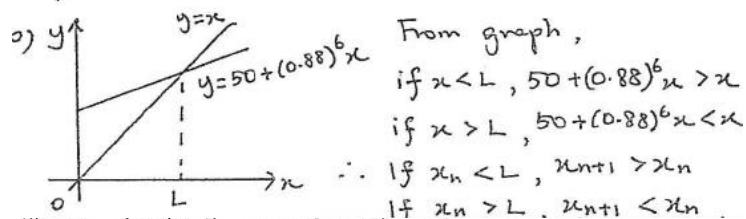 b) y y=x
y=50+(0.88)⁶x
O L x
From graph,
if x<L, 50+(0.88)⁶x >x
if x>L, 50+(0.88)⁶x <x
∴ If xₙ <L, xₙ₊₁ >xₙ
If xₙ >L, xₙ₊₁ <xₙ